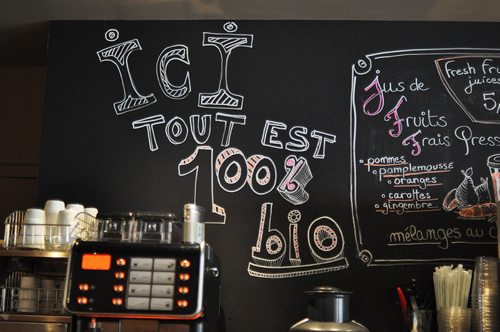 ici
TOUT EST
100%
bio
Jus de
Fruits
Frais Press
Fresh Fru
juices
5,
• pommes
• pamplemousse
• oranges
• carottes
• gingembre
mélanges au c